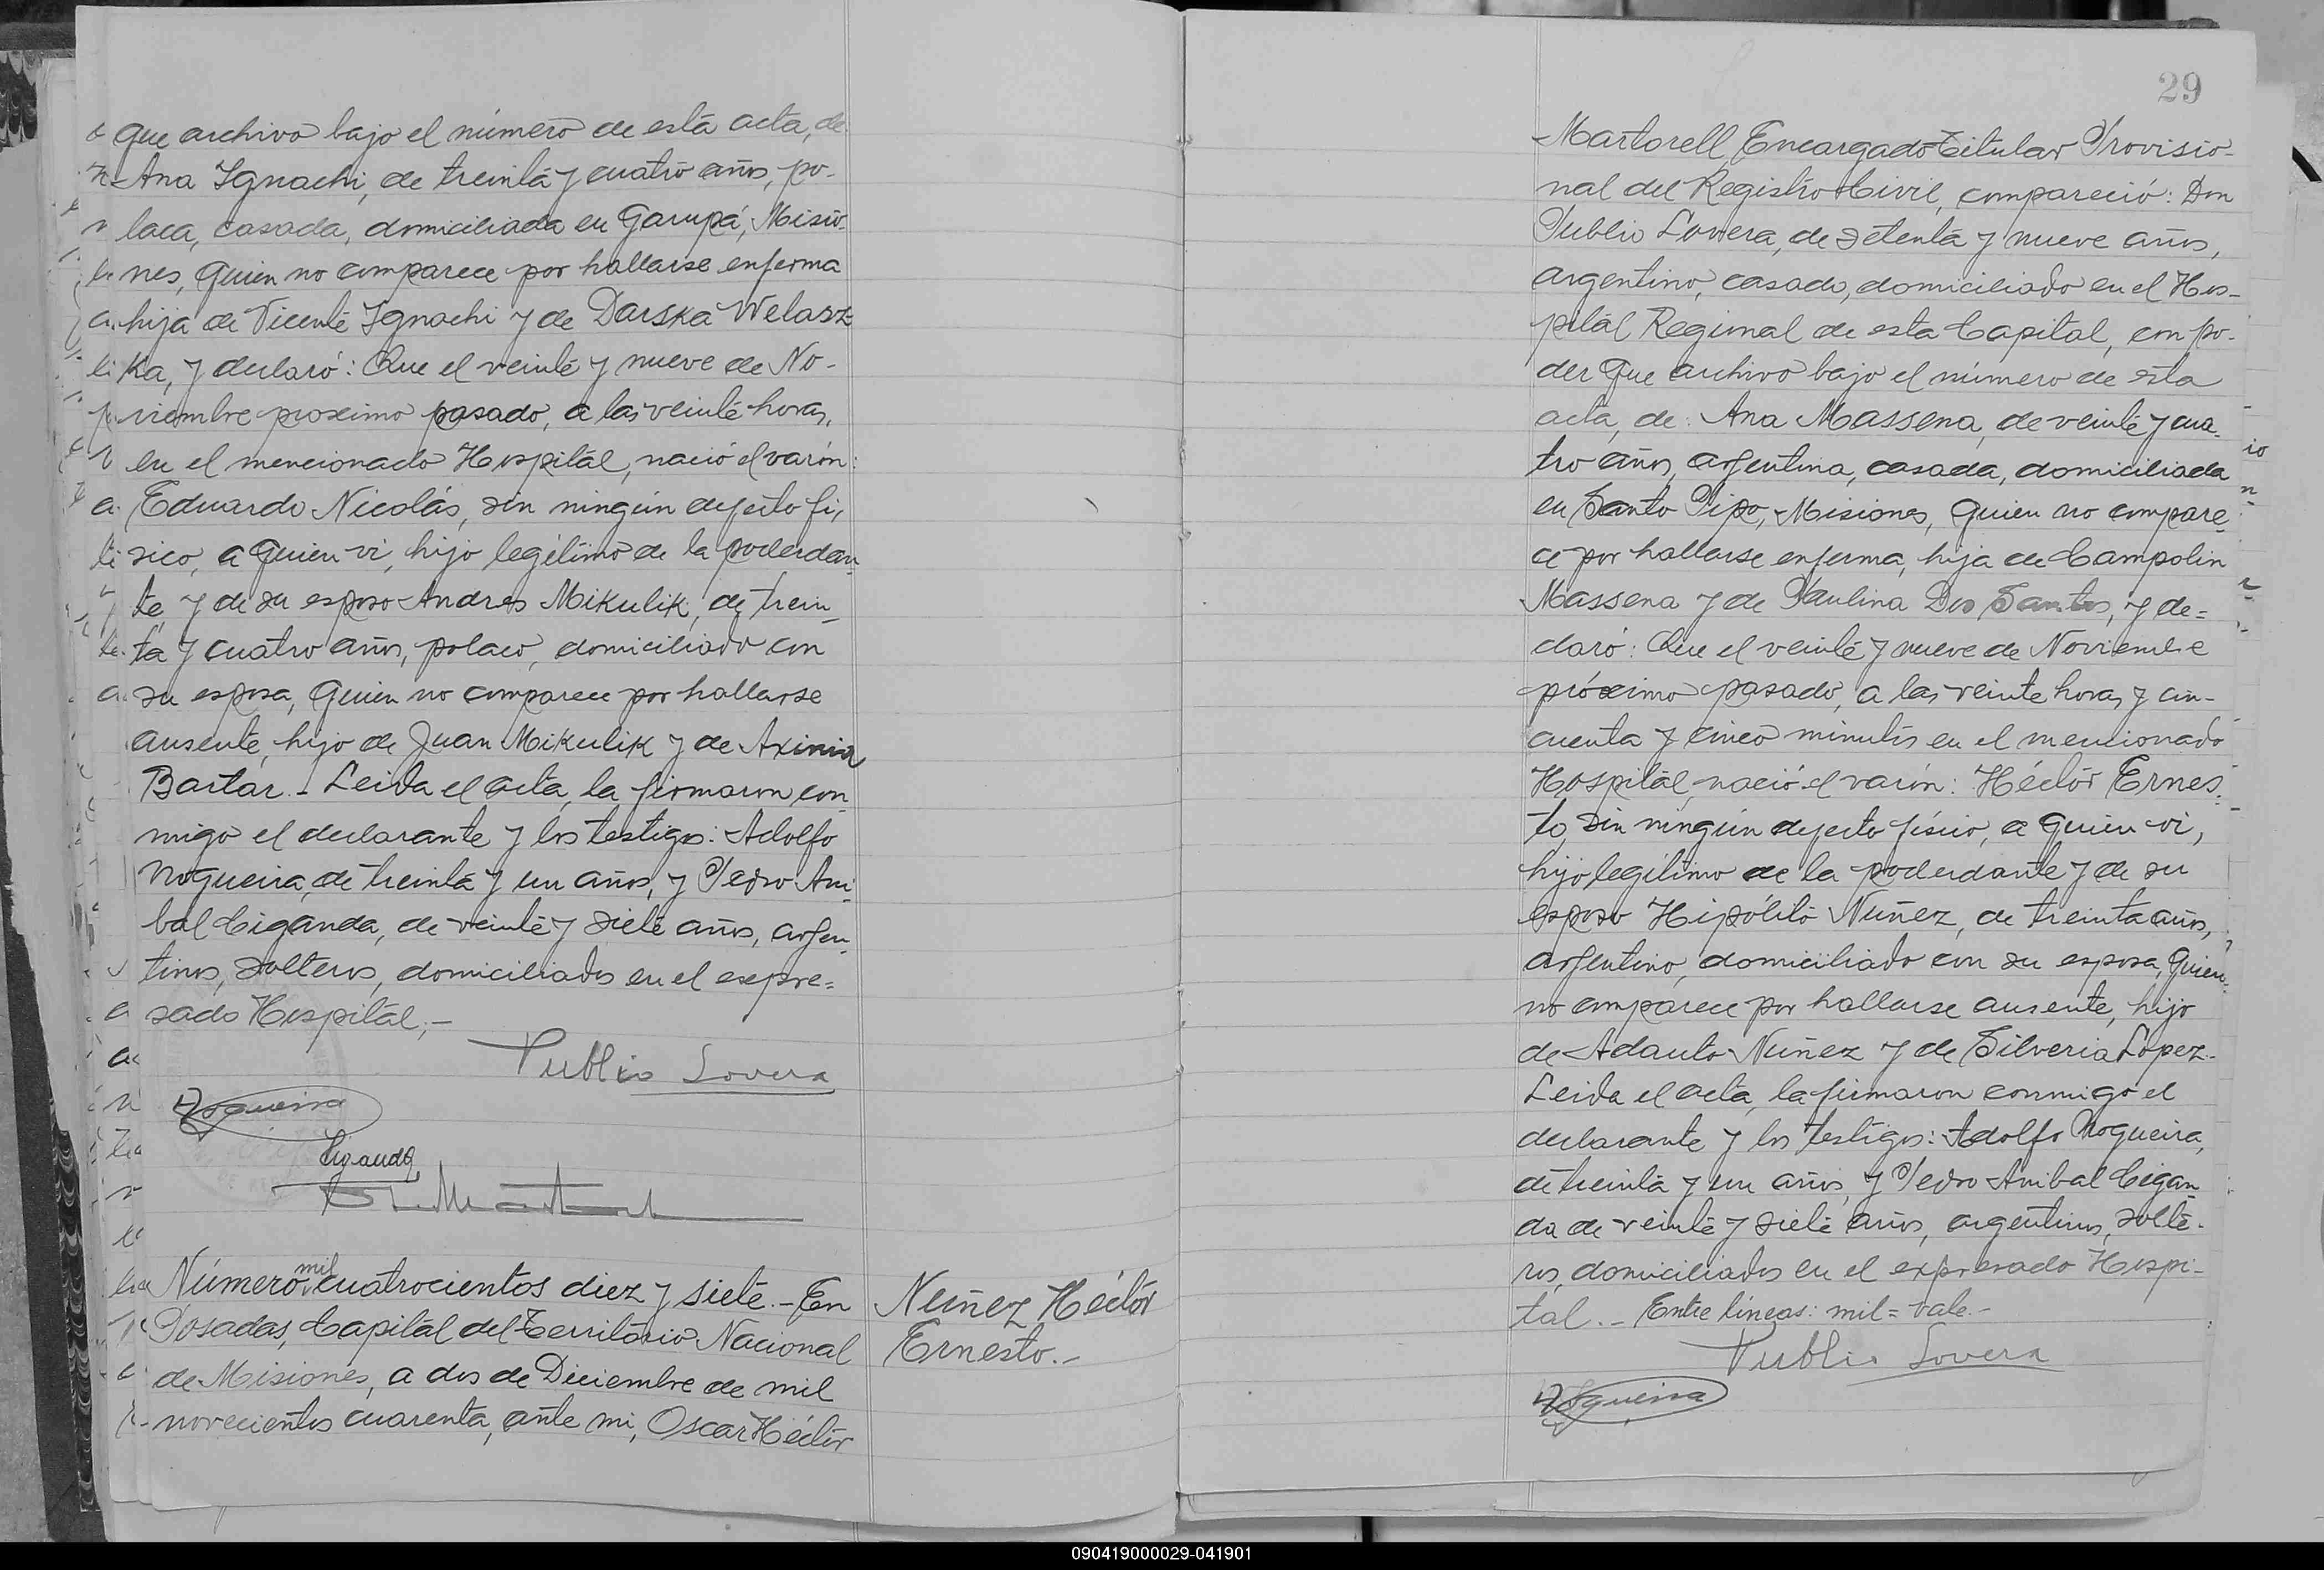 que archivo bajo el número de esta acta, de:
Ana Ignachi, de treinta y cuatro años, po-
laca, casada, domiciliada en Garupá, Misio-
nes, quien no comparece por hallarse enferma
hija de Vicente Ignachi y de Darska Welasz
ka, y declaró: Que el veinte y nueve de No-
viembre proximo pasado, a las veinte horas,
en el mencionado Hospital, nació el varón:
Eduardo Nicolás, sin ningún defecto fí-
sico, a quien vi, hijo legítimo de la poderdan
te, y de su esposo Andres Mikulik, de trein-
ta y cuatro años, polaco, domiciliado con
su esposa, quien no comparece por hallarse
ausente, hijo de Juan Mikulik y de Axinia
Bartar.- Leida el acta, la firmaron con
migo el declarante y los testigos: Adolfo
Nogueira, de treinta y un años, y Pedro Aní
bal Ciganda, de veinte y siete años, argen
tinos, solteros, domiciliados en el expre=
sado Hospital.-
Publio Lovera
Nogueira
Ciganda
Número mil cuatrocientos diez y siete.- En
Posadas, Capital del Territorio Nacional
de Misiones, a dos de Diciembre de mil
novecientos cuarenta, ante mi, Oscar Héctor
Nuñez Héctor
Ernesto.-
29
Martorell, Encargado Titular Provisio-
nal del Registro Civil, compareció: Don
Publio Lovera, de setenta y nueve años,
argentino, casado, domiciliado en el Hos-
pital Regional de esta Capital, con po-
der que archivo bajo el número de esta
acta, de: Ana Massena, de veinte y cua-
tro años, argentina, casada, domiciliada
en Santo Pipo, Misiones, quien no compare
ce por hallarse enferma, hija de Campolin
Massena y de Paulina Dos Santos, y de=
claró: Que el veinte y nueve de Noviembre
próximo pasado, a las veinte horas y cin-
cuenta y cinco minutos en el mencionado
Hospital, nació el varón: Héctor Ernes-
to, sin ningún defecto físico, a quien vi,
hijo legítimo de la poderdante y de su
esposo Hipólito Nuñez, de treinta años,
argentino, domiciliado con su esposa, quien
no comparece por hallarse ausente, hijo
de Adauto Nuñez y de Silveria Lopez.-
Leida el acta, la firmaron conmigo el
declarante y los testigos: Adolfo Nogueira,
de treinta y un años, y Pedro Anibal Cigan
da de veinte y siete años, argentinos, solte-
ros, domiciliados en el expresado Hospi-
tal.- Entre lineas: mil = vale.-
Publio Lovera
Nogueira
090419000029-041901